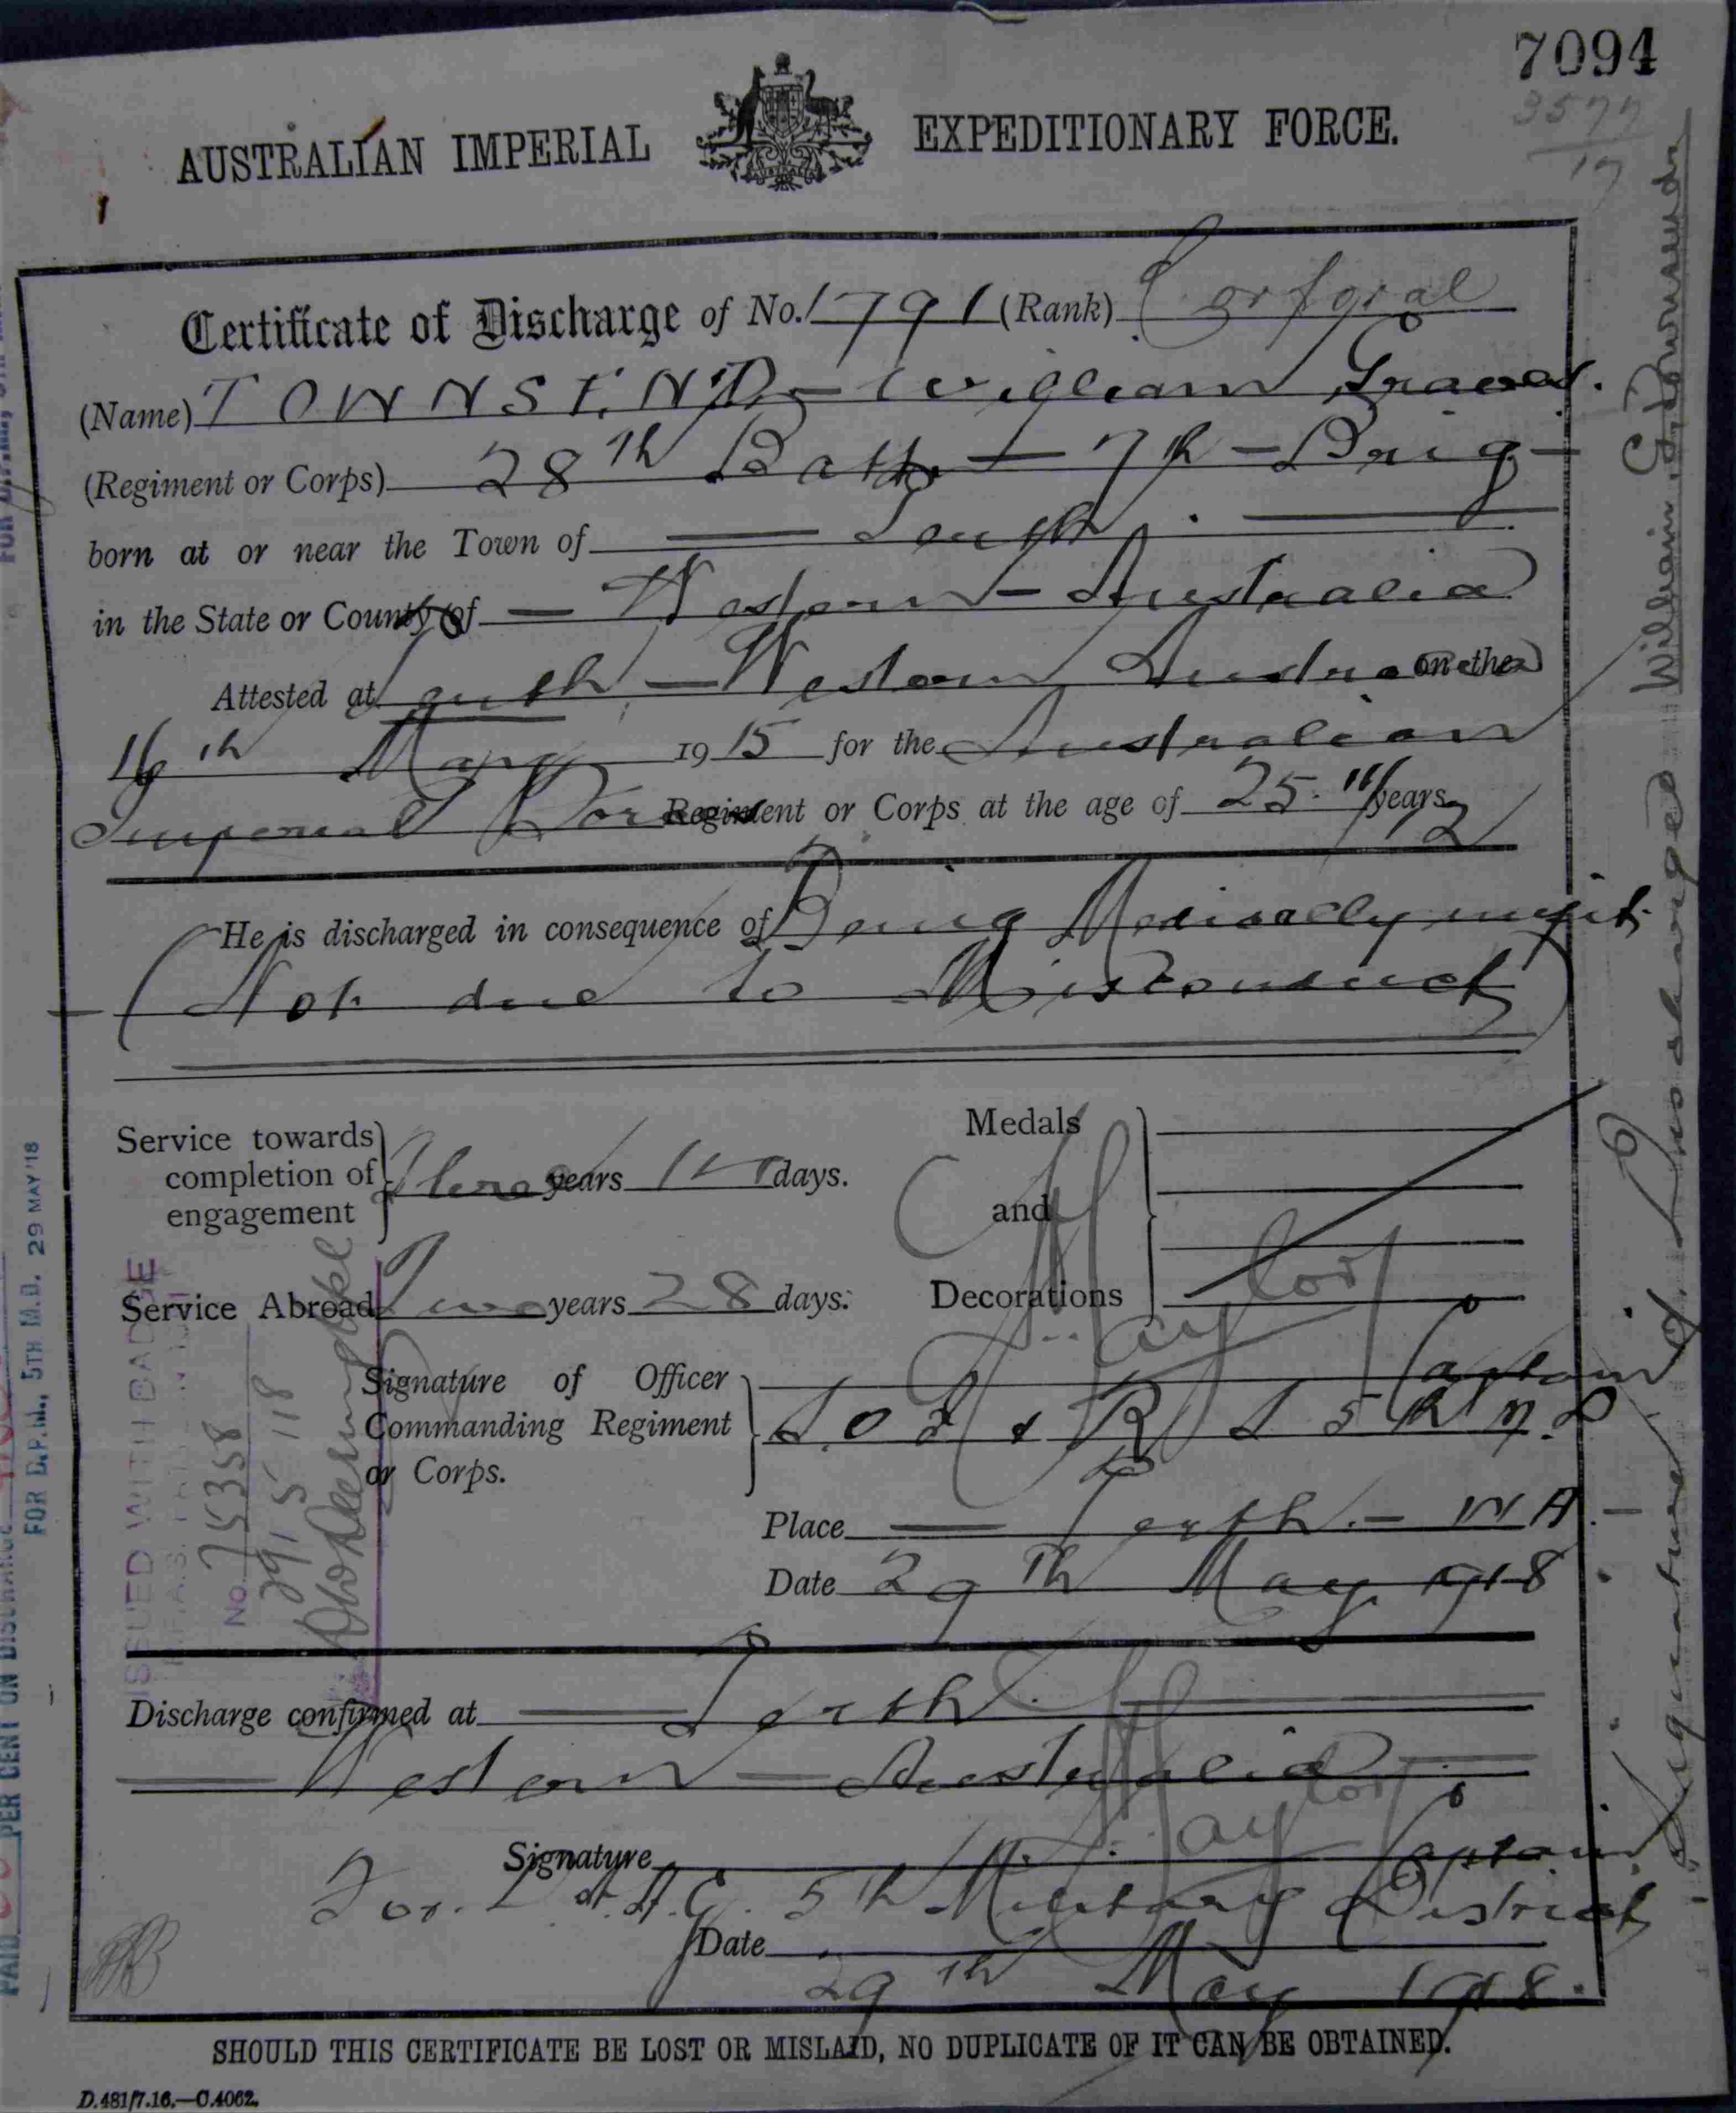 7094
3577
17
AUSTRALIAN IMPERIAL EXPEDITIONARY FORCE.
Certificate of Discharge of No. 1791 (Rank) Corporal
(Name) TOWNSEND - William Graves.
(Regiment or Corps) 28th Battn - 7th - Brig -
born at or near the Town of Perth.
in the State or County of - Western - Australia
Attested at Perth - Western Australia on the
16th May 1915 for the Australian
Imperial Force Regiment or Corps at the age of 25 11/12 years
He is discharged in consequence of Being Medically unfit
(Not due to Misconduct)
Service towards completion of engagement Three years 14 days.
Service Abroad Two years 28 days.
Medals and Decorations
Signature of Officer Commanding Regiment or Corps. Taylor Captain
5th M.D
Place Perth. - WA.
Date 29th May 1918
Discharge confirmed at Perth
Western - Australia
Signature Taylor Captain
For. 5th Military District
Date 29th May 1918.
SHOULD THIS CERTIFICATE BE LOST OR MISLAID, NO DUPLICATE OF IT CAN BE OBTAINED.
D.481/7.16.-C.4062.
ISSUED WITH BADGE
No. 75358
29/5/18
FOR D.P.M., 5TH M.D. 29 MAY '18
PAID PER CENT ON DISCHARGE
Signature of Discharged William G Townsend